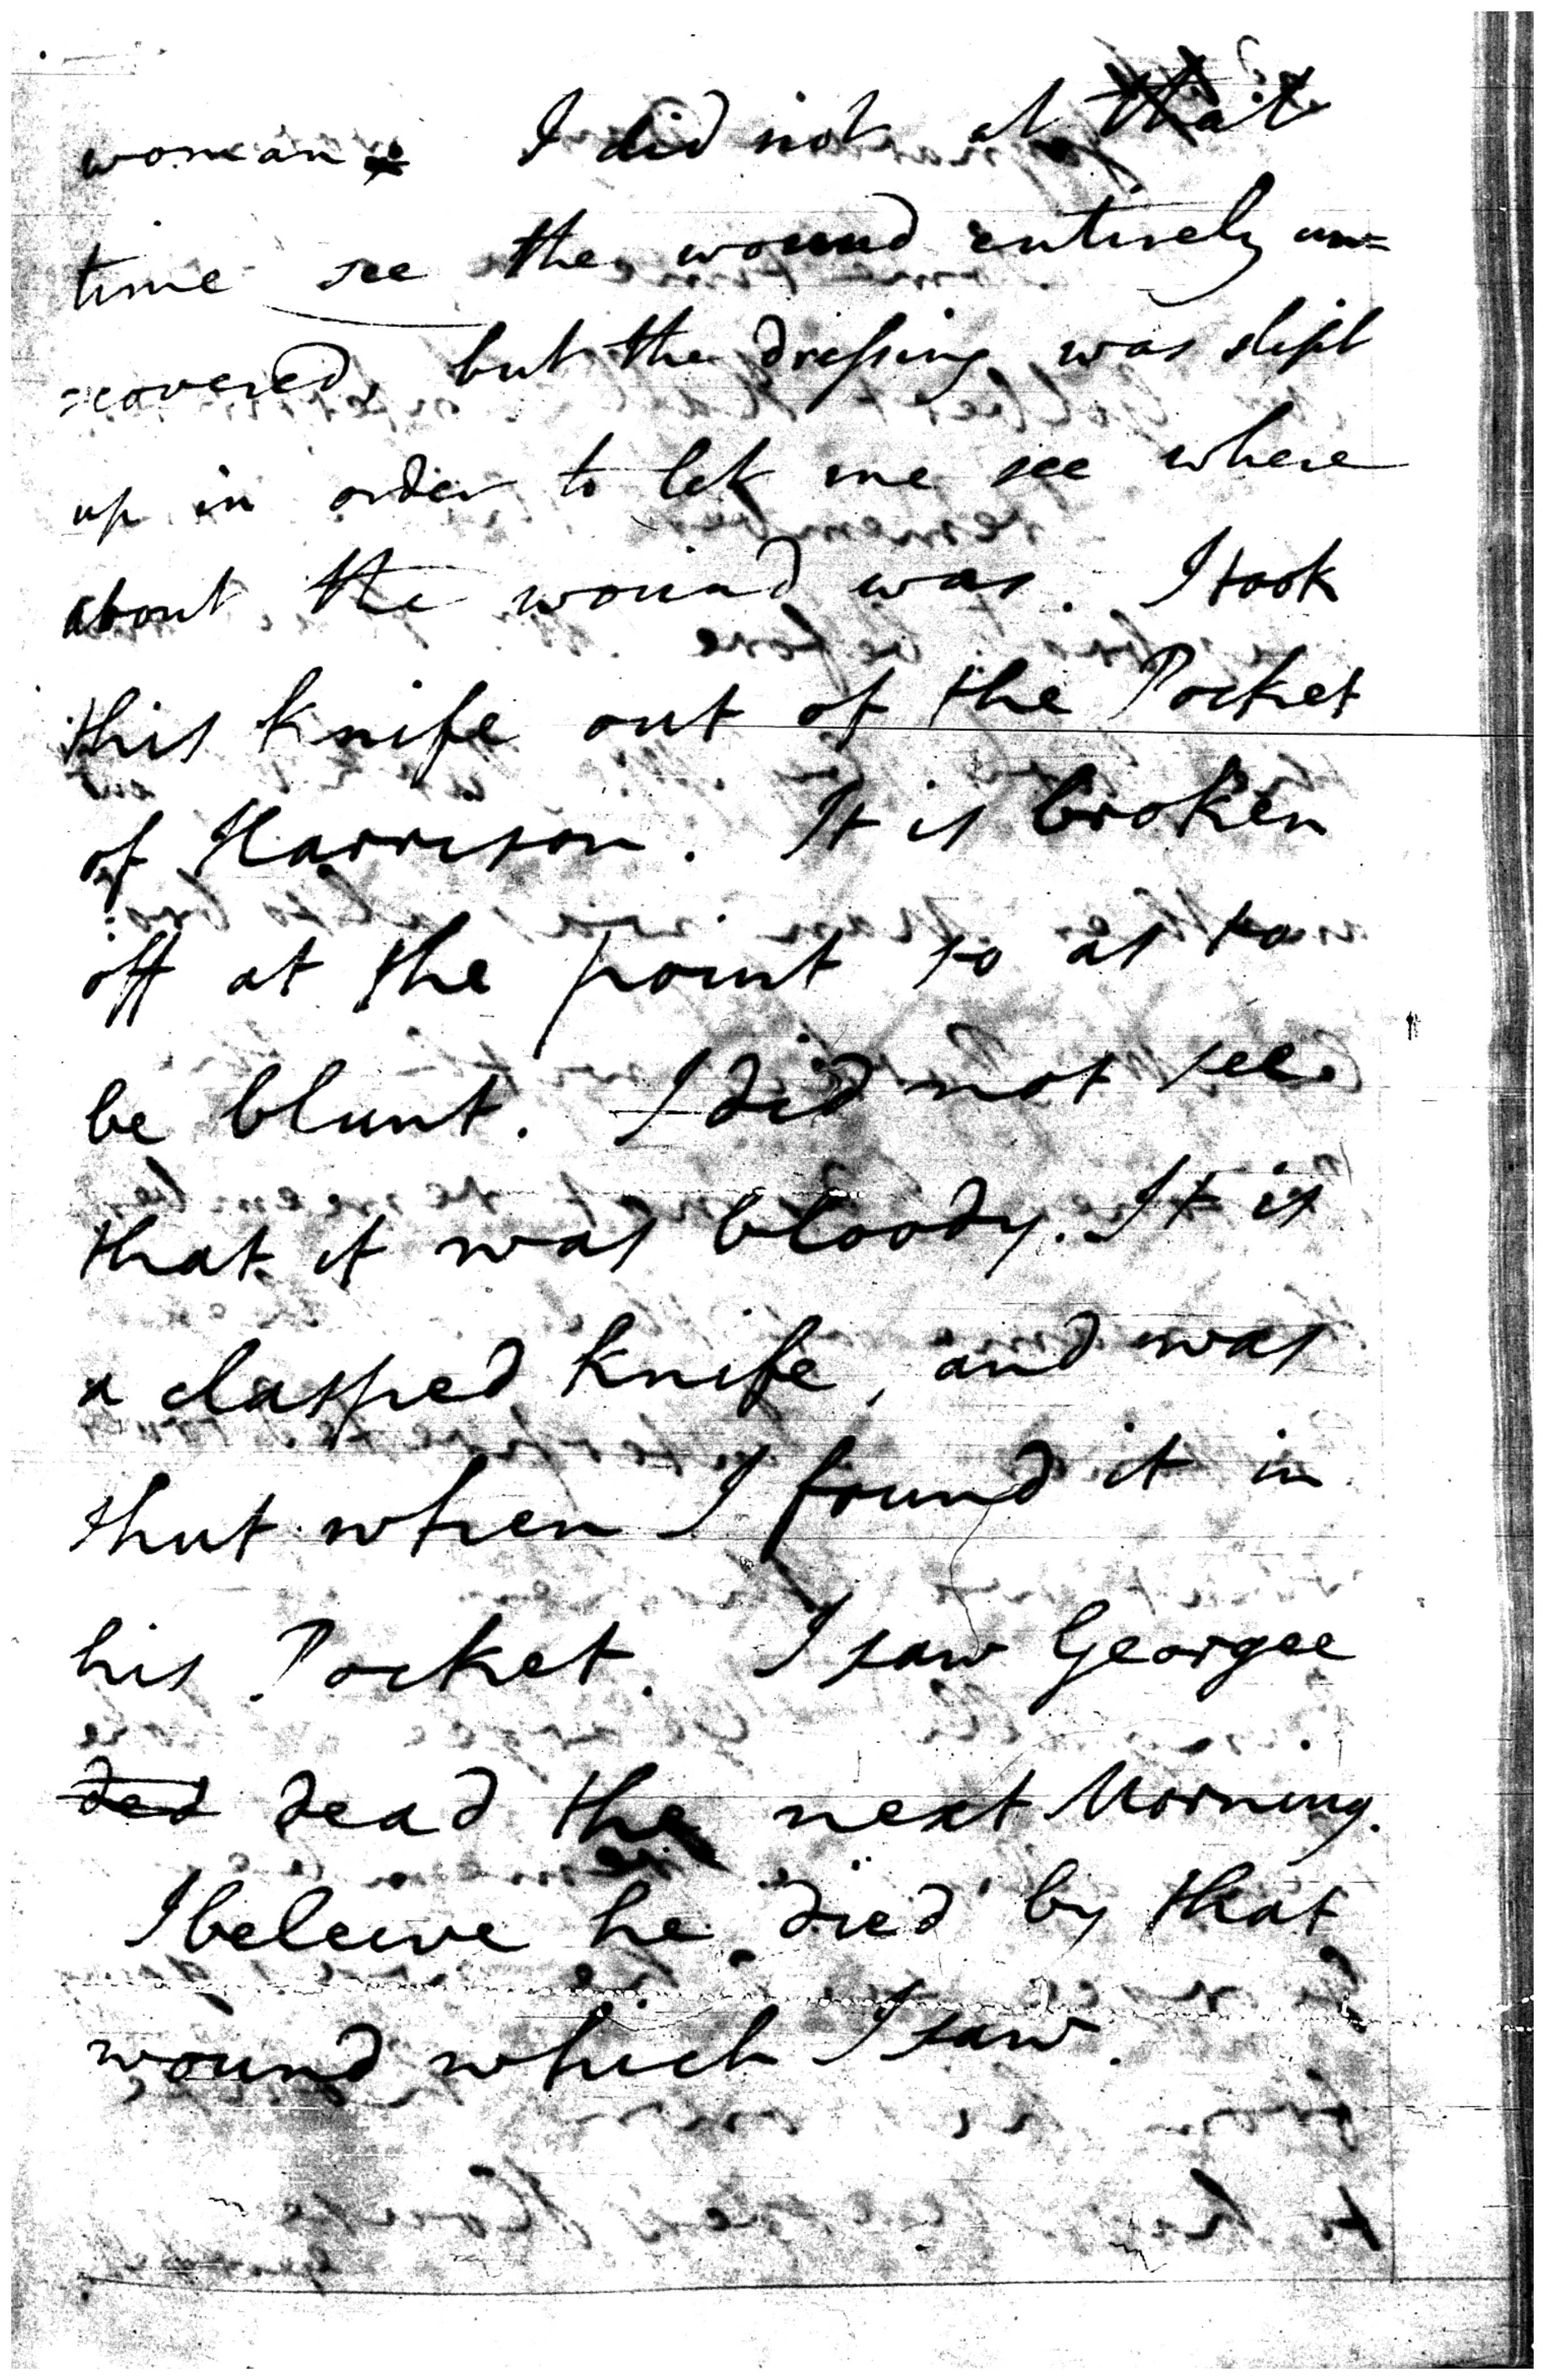 woman. I did not at that
time see the wound entirely un=
=covered, but the dressing was slipt
up in order to let me see where
about the wound was. I took
this knife out of the Pocket
of Harrison. It is broken
off at the point so as to
be blunt. I did not see
that it was bloody. It is
a clasped knife, and was
shut when I found it in
his Pocket. I saw Georgee
ded dead the next Morning.
I beleeve he died by that
wound which I saw.